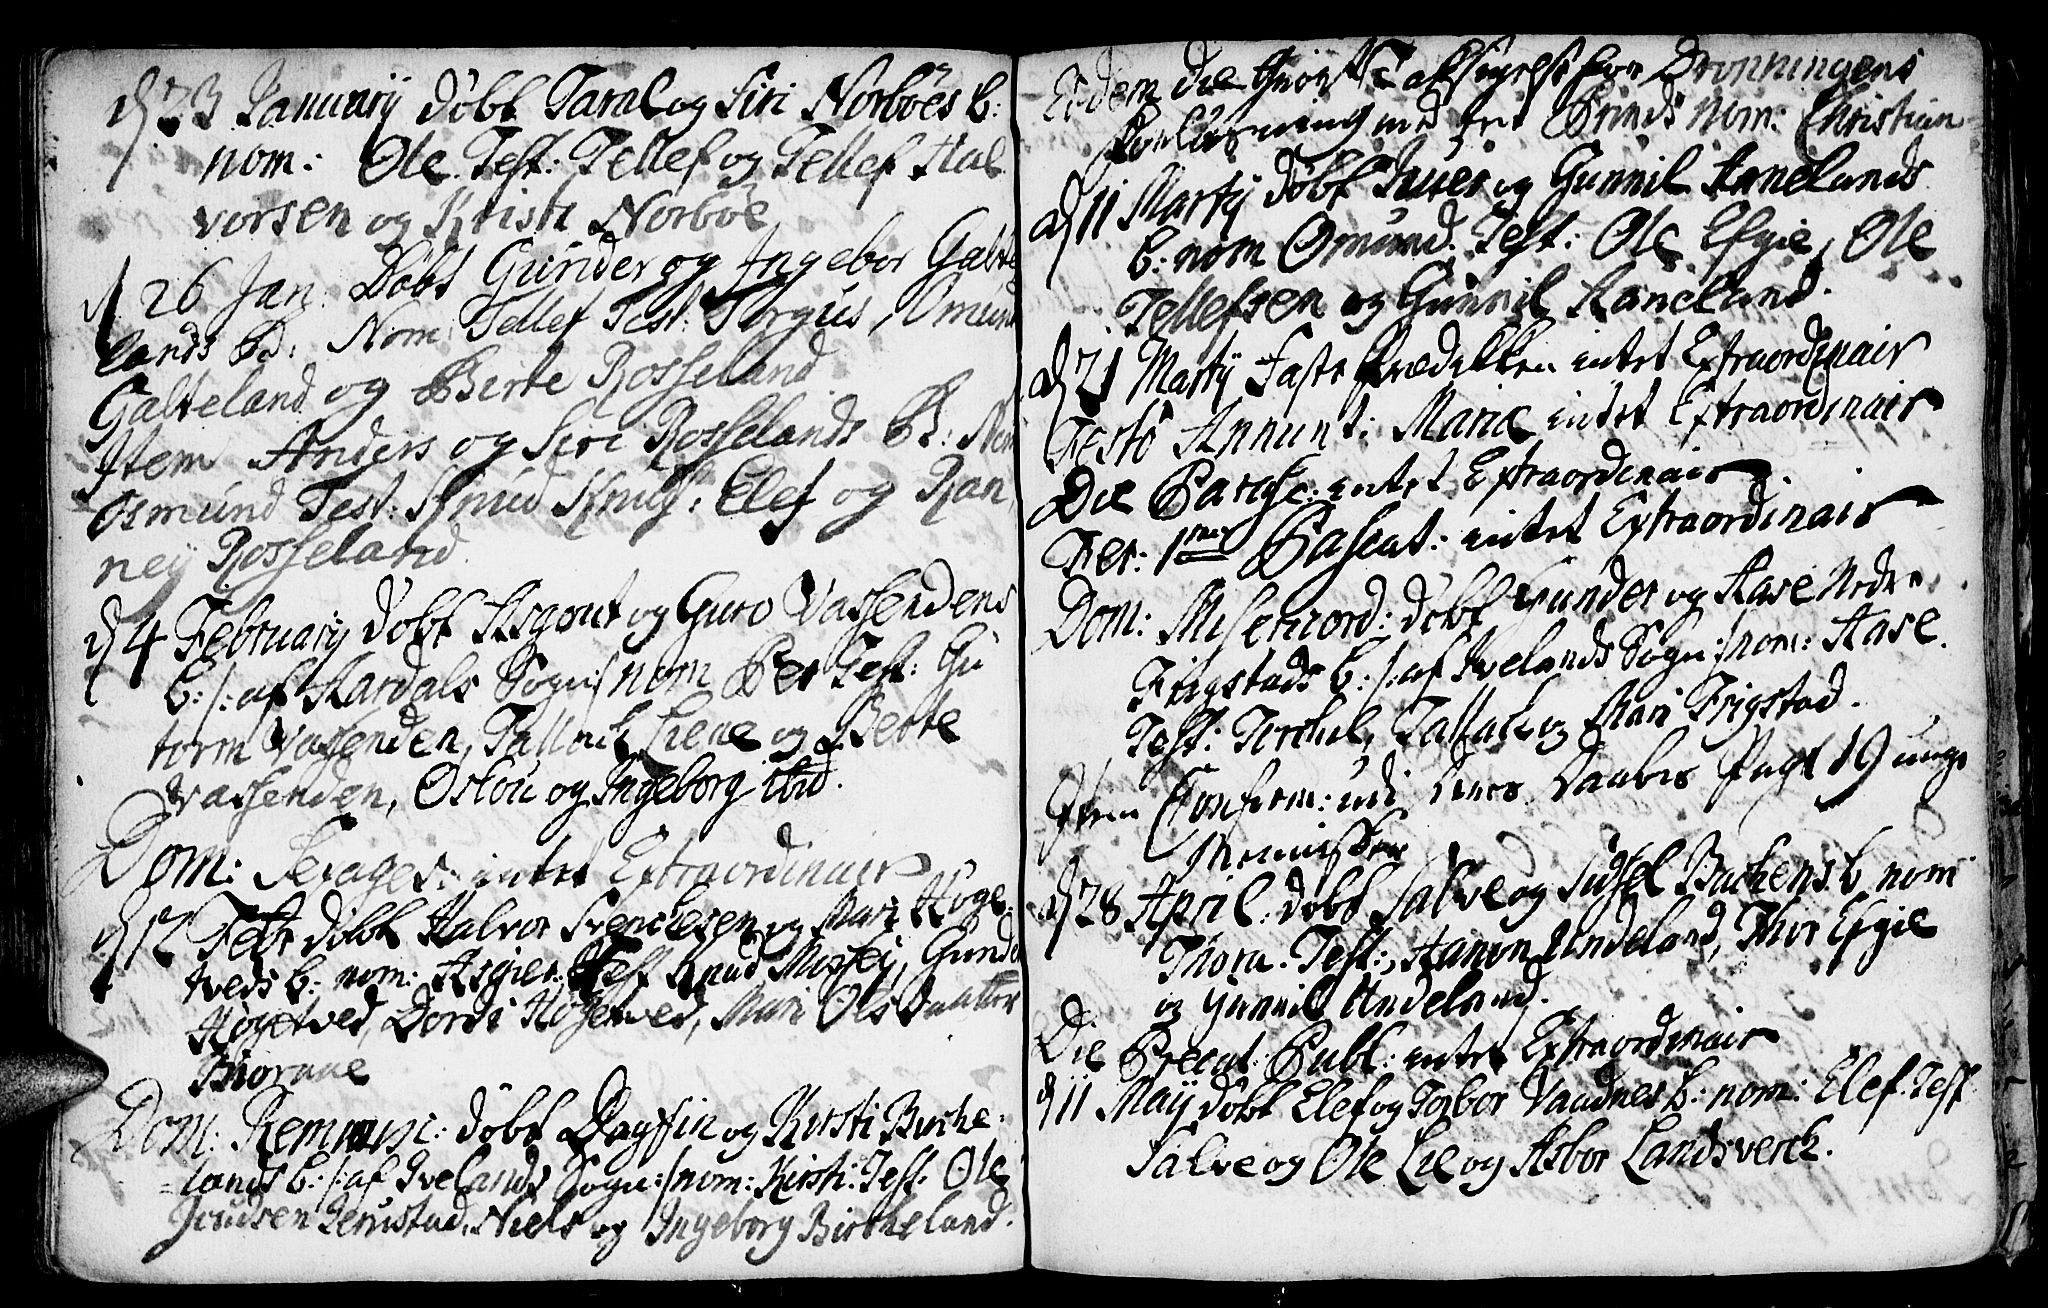 d 23 Januarij døbt Taral og Siri Norbøes b:
nom: Ole. Test: Tellef og Tellef Hal
vorsen og Kristi Norbøe
d 26 Jan: Døbt Gunder og Ingebor Galte
lands B: Nom: Tellef Test: Torgus, Omund
Galteland og Berte Rosseland
Item Anders og Siri Rosselands B: Nom
Osmund Test: Knud Knuds: Elef og Ran
neij Rosseland
d 4 Februarij døbt Asgout og Guro Vassendens
b: /: af Aardals Sogn :/ nom Per Test: Gu
torm Vassenden, Tallack Liene og Berte
Vassenden, Oslou og Ingeborg ibid.
Dom: Sexages: intet Extraordinair
d 12 Febr døbt Halvor Svendsen og Mari Høge
tveds b: nom: Asgier. Test Knud Mosseij, Gunder
Høgetved, Dordi Høgetved, Mari Olsdaatter
Bioraae
Dom: Reminisc: døbt Dagfin og Kirsti Birke
lands b: /: af Ivelands Sogn :/ nom: Kirsti: Test. Ole
Knudsen Jerustad, Niels og Ingeborg Birckeland.
Eodem die giort Taksigelse for Dronningens
Forløsning med en Prinds nom: Christian
d 11 Martij døbt Iuer og Gunnil Aanelands
b: nom Omund. Test: Ole Efgie, Ole
Tellefsen og Gunnil Aaneland.
d 21 Martij Faste Prædikken intet Extraordinair
Festo Annunt: Mariæ intet Extraordinair
Die Parasc: intet Extraordinair
Fer: 1ma Pascat: intet Extraordinair
Dom: Misericord: døbt Gunder og Aase Nedre
Frigstads b: /: af Ivelands Sogn :/ nom: Aase.
Test: Terchel, Tallak og Mari Frigstad.
Item Confirm: udi deres Daabes Pagt 19 unge
Mennisker
d 28 April: døbt Salve og Sidsel Birkens b nom
Thora. Test:, Aanon Undeland, Thor Efgie
og Gunnil Undeland.
Die Precat: Publ: intet Extraordinair
d 11 Maij døbt Elef og Torbor Vandnes b: nom: Elef. Test
Salve og Ole Lie og Asbor Landsverck.